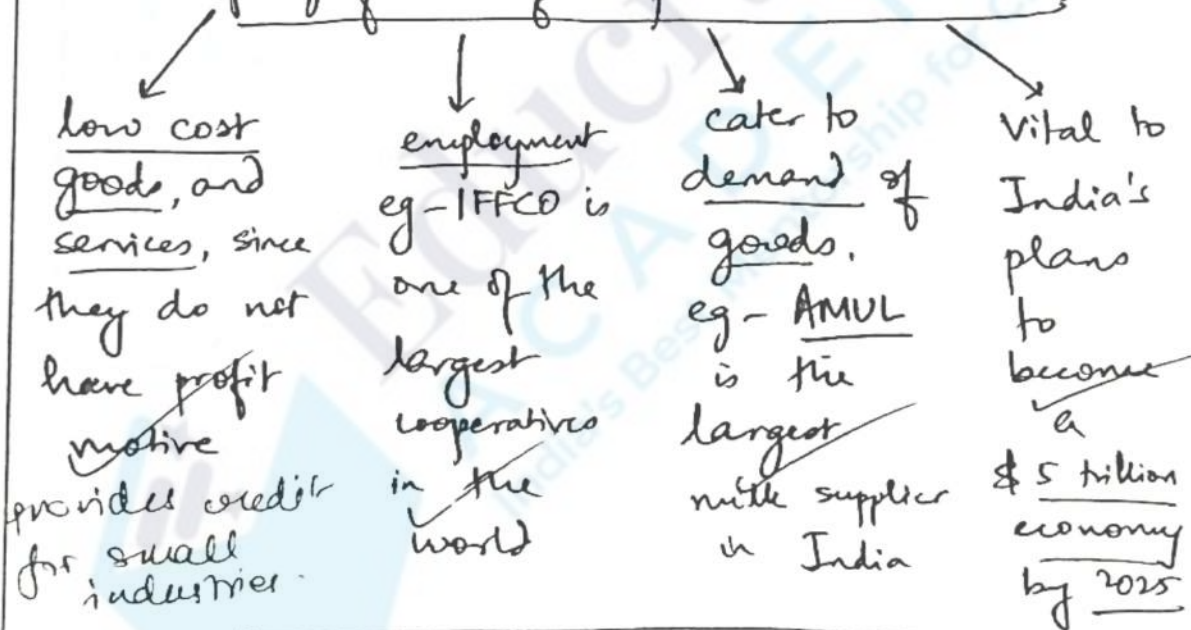 low cost
goods, and
services, since
they do not
have profit
motive
provides credit
for small
industries.
employment
eg - IFFCO is
one of the
largest
cooperatives
in the
world
cater to
demand of
goods.
eg - AMUL
is the
largest
milk supplier
in India
Vital to
India's
plans
to
become
a
$ 5 trillion
economy
by 2025